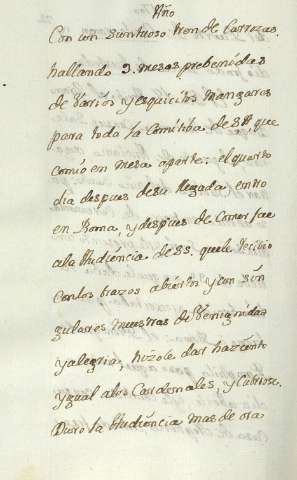 vino
Con un suntuoso tren de Carrozas.
hallando 3. mesas prebenidas
de varios y esquicitos manxares
para toda la Comitiba de SE, que
comio en mesa aparte: el quarto
dia despues de su llegada, entro
en Roma, y despues de Comer fue
a la Audiencia de SS. que le recivio
Con los brazos abiertos y con sin
gulares muestras de venignidad
y alegria, hizole dar haziento
ygual a los Cardenales, y Cubrirse.
Duro la Audiencia mas de ora